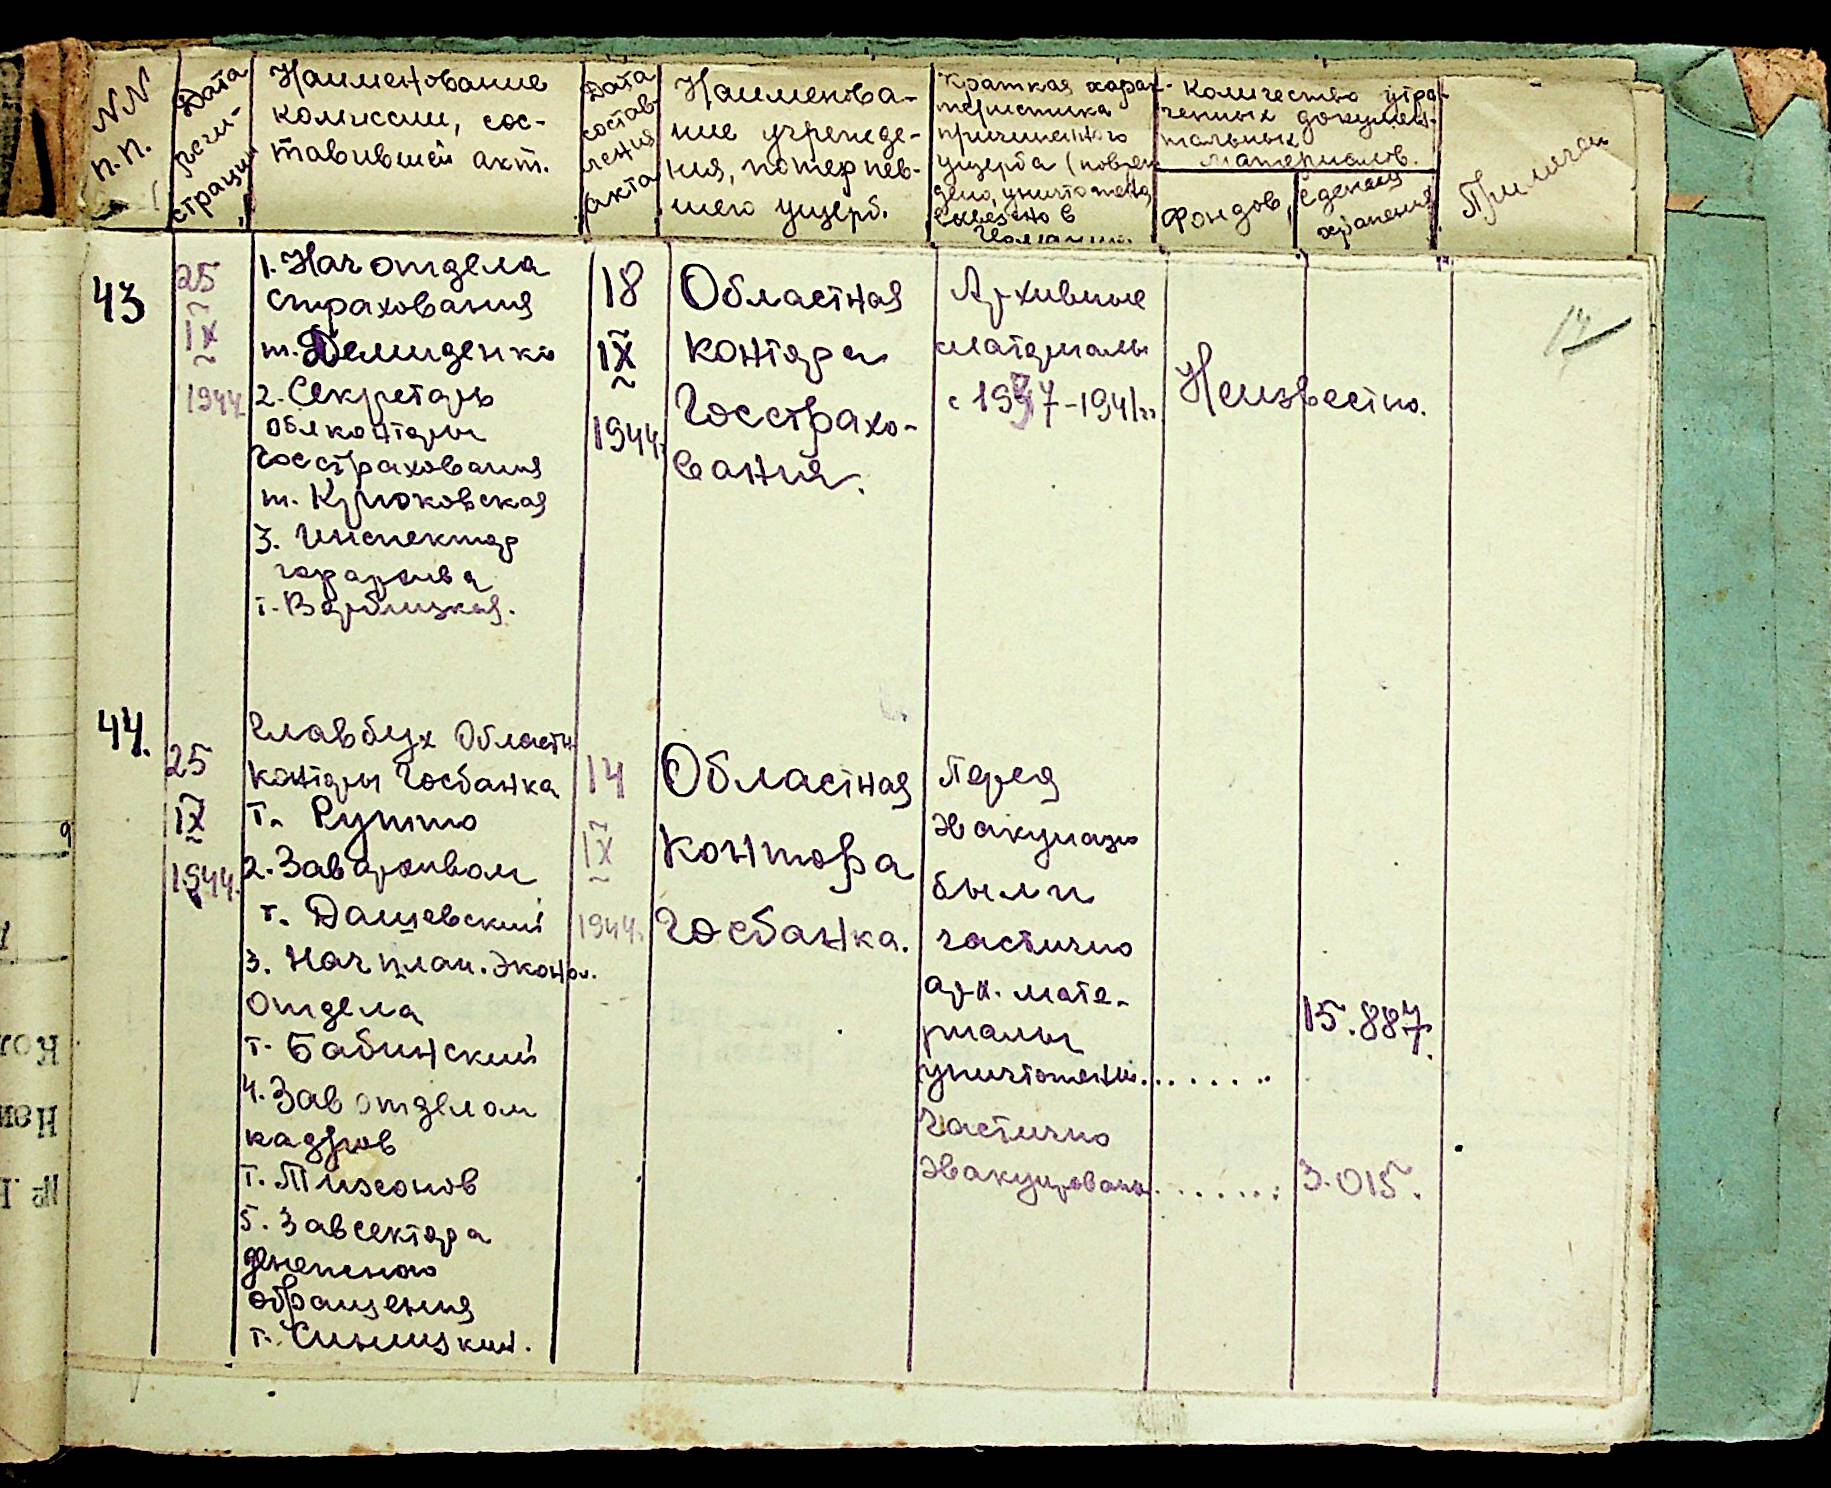 NN
п.п.
Дата
реги-
страции
Наименование
комиссии, сос-
тавившей акт.
Дата
состав-
ления
акта
Наименова-
ние учрежде-
ния, потерпев-
шего ущерб.
Краткая харак-
теристика
причиненного
ущерба (повреж
дено, уничтожено,
вывезено в
Количество утра-
ченных докумен-
тальных
материалов.
Фондов,
Единиц
хранения
Примечан
17
43
25
IX
1944
1. Нач отдела
страхования
т. Демиденко
2. Секретарь
облконторы
Госстрахования
т. Крюковская
3. Инспектор
горархива
18
IX
1944.
Областная
контора
Госстрахо-
вания.
Архивные
материалы
с 1937-1941гг
Неизвестно.
44.
25
IX
1944.
Главбух Областн
конторы Госбанка
т.
2. Зав архивом
т. Дашевский
3. Нач план. эконом.
отдела
т. Бабинский
4. Зав отделом
кадров
т. Тихонов
5. Завсектора
денежного
обращения
т. Синицкий.
14
IX
1944.
Областная
контора
Госбанка.
Перед
эвакуацией
были
частично
арх. мате-
риалы
уничтожены.......
15.887.
Частично
эвакуированы.......
3.015.
Кол
Наи
№ П